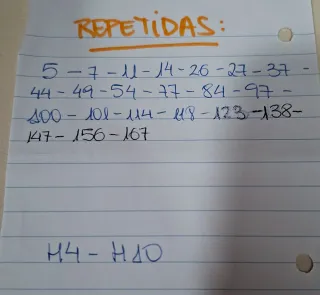 REPETIDAS:
5 - 7 - 11 - 14 - 26 - 27 - 37 -
44 - 49 - 54 - 77 - 84 - 97 -
100 - 101 - 114 - 118 - 123 - 138 -
147 - 156 - 167
H4 - H10